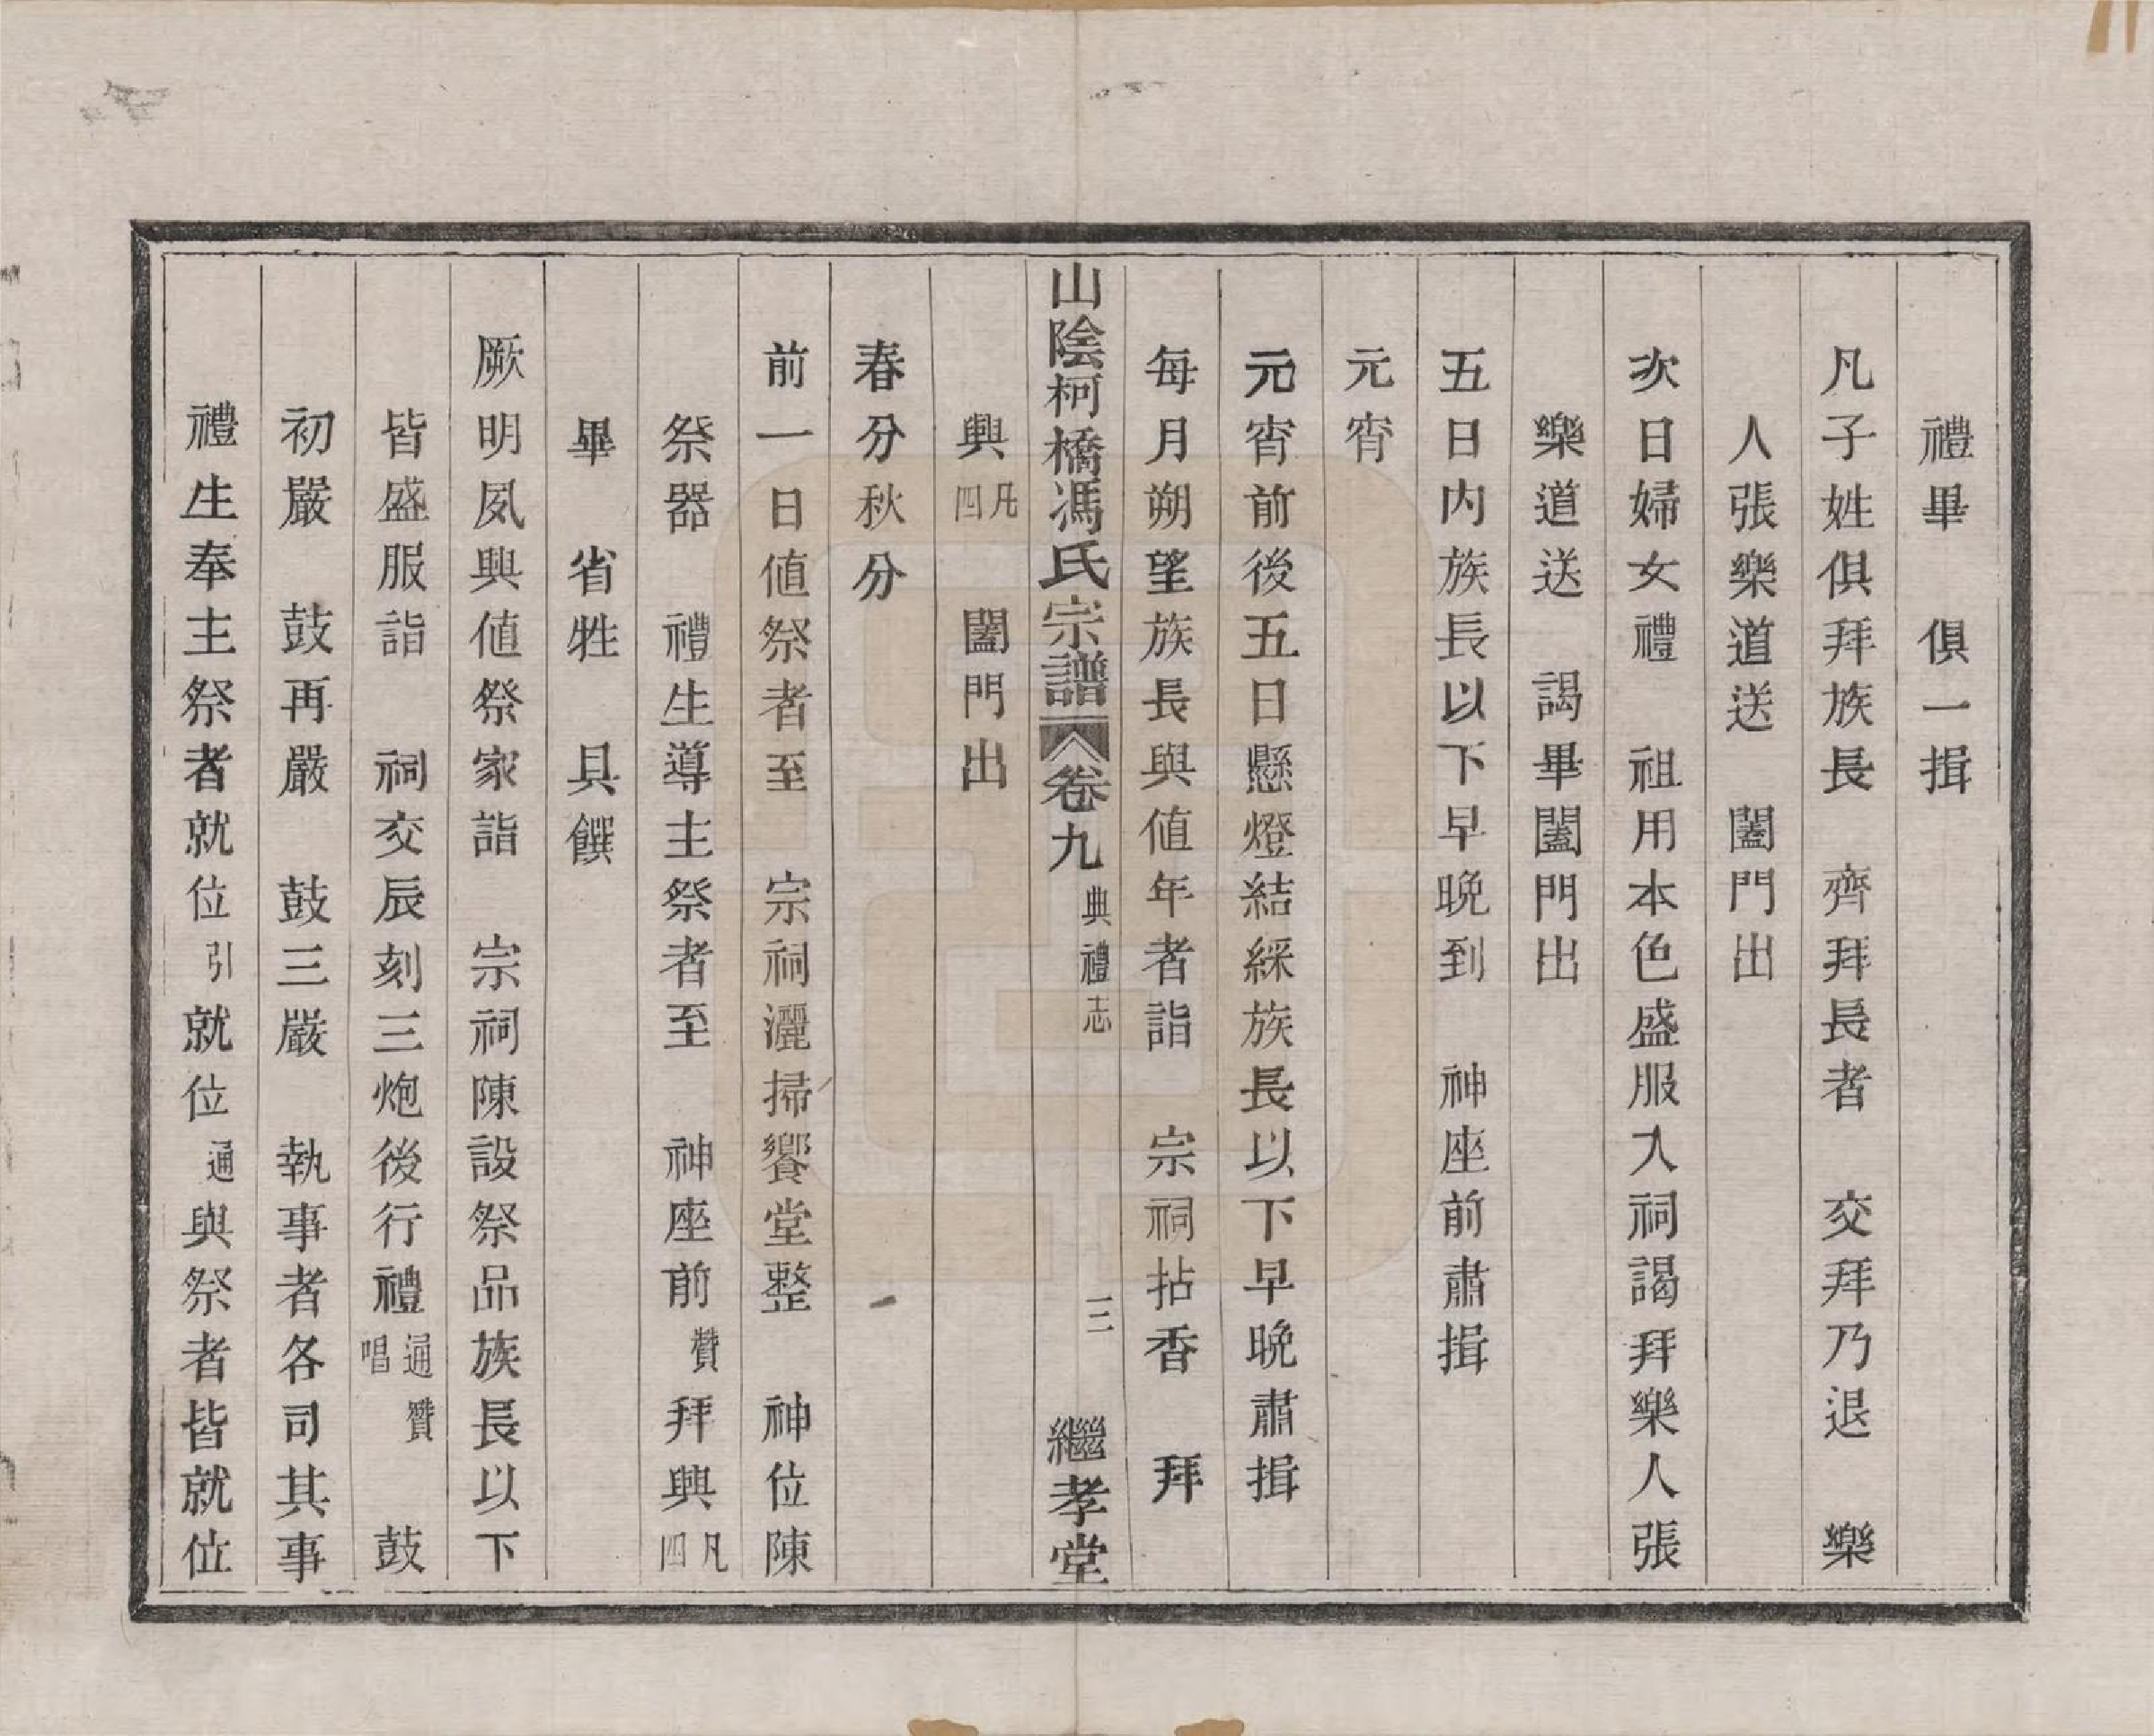 禮畢　俱一揖
凡子姓俱拜族長　齊拜長者　交拜乃退　樂
人張樂道送　闔門出
次日婦女禮　祖用本色盛服入祠謁拜樂人張
樂道送　謁畢闔門出
五日內族長以下早晚到　神座前肅揖
元宵
元宵前後五日懸燈結綵族長以下早晚肅揖
每月朔望族長與値年者詣　宗祠拈香　拜
興凡四　闔門出
山陰柯橋馮氏宗譜　卷九　典禮志　三　繼孝堂
春分秋分
前一日値祭者至　宗祠灑掃饗堂整　神位陳
祭器　禮生導主祭者至　神座前贊拜興凡四
畢　省牲　具饌
厥明夙興値祭家詣　宗祠陳設祭品族長以下
皆盛服詣　祠交辰刻三炮後行禮通贊唱　鼓
初嚴　鼓再嚴　鼓三嚴　執事者各司其事
禮生奉主祭者就位引就位通與祭者皆就位